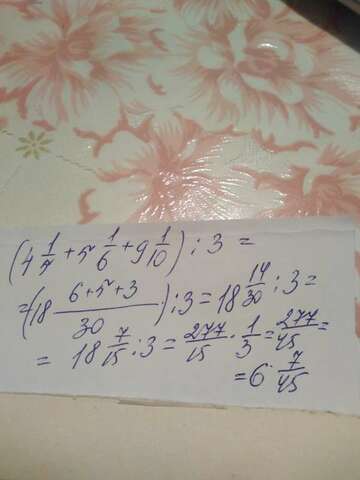 (4 1/5 + 5 1/6 + 9 1/10) : 3 =
= (18 (6+5+3)/30) : 3 = 18 14/30 : 3 =
= 18 7/15 : 3 = 277/15 · 1/3 = 277/45 =
= 6 7/45